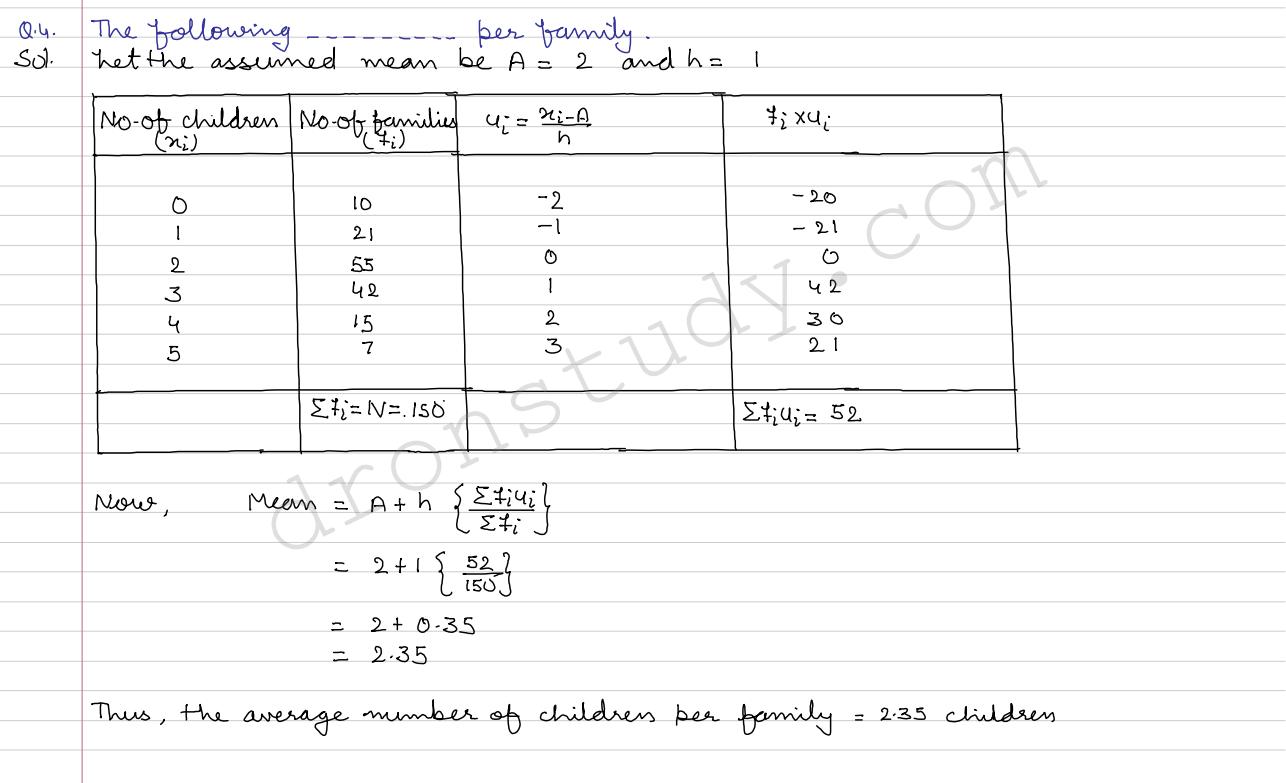 Q.4. The following --------- per family.
Sol. Let the assumed mean be A = 2 and h = 1
No. of children (xi) No. of families (fi) ui = xi-A/h fi x ui
0 10 -2 -20
1 21 -1 -21
2 55 0 0
3 42 1 42
4 15 2 30
5 7 3 21
Σfi = N = 150 Σfiui = 52
Now, Mean = A + h {Σfiui/Σfi}
= 2+1 {52/150}
= 2 + 0.35
= 2.35
Thus, the average number of children per family = 2.35 children
dronstudy.com